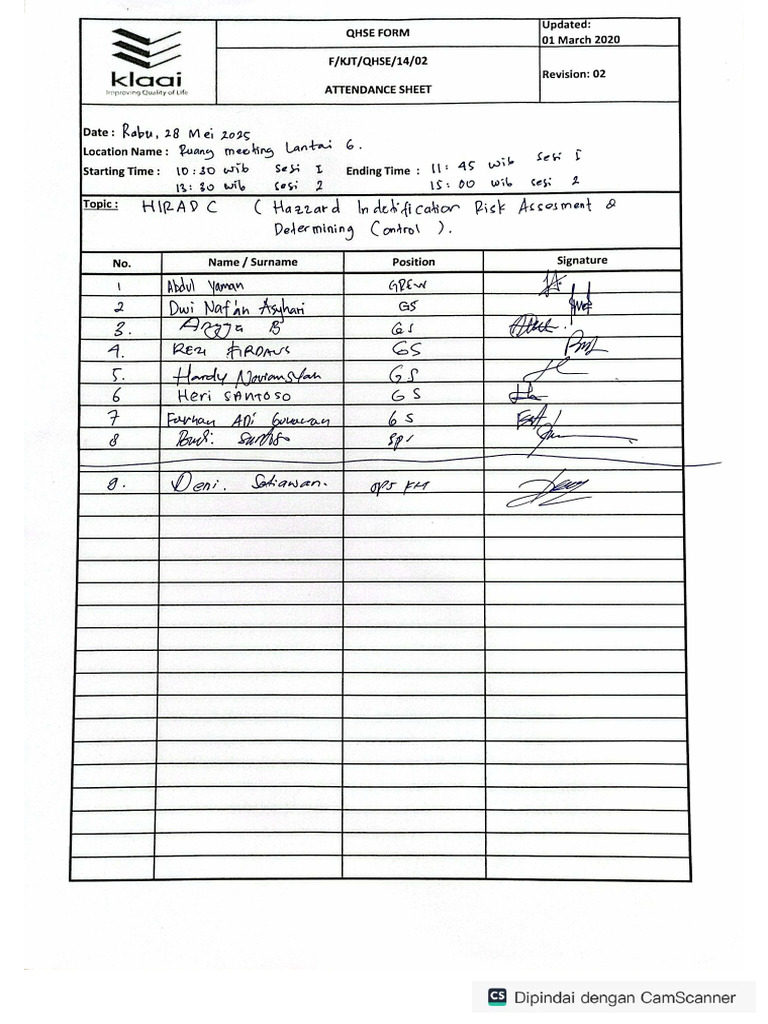 klaai
Improving Quality of Life
QHSE FORM
Updated:
01 March 2020
F/KJT/QHSE/14/02
ATTENDANCE SHEET
Revision: 02
Date : Rabu, 28 Mei 2025
Location Name : Ruang meeting Lantai 6.
Starting Time : 10:30 wib sesi I Ending Time : 11:45 wib sesi I
13:30 wib sesi 2 15:00 wib sesi 2
Topic : HIRAD C ( Hazzard Indetification Risk Assesment &
Determining Control ).
No. Name / Surname Position Signature
1 Abdul Yaman CREW
2 Dwi Naf'an Asyhari GS
3. Angga B GS
4. REZI FIRDAUS GS
5. Hardy Noviansyah GS
6 Heri SANTOSO GS
7 Farhan ADi Gunawan GS
8 Budi Santoso SPV
9. Deni. Setiawan. OPS FM
CS Dipindai dengan CamScanner